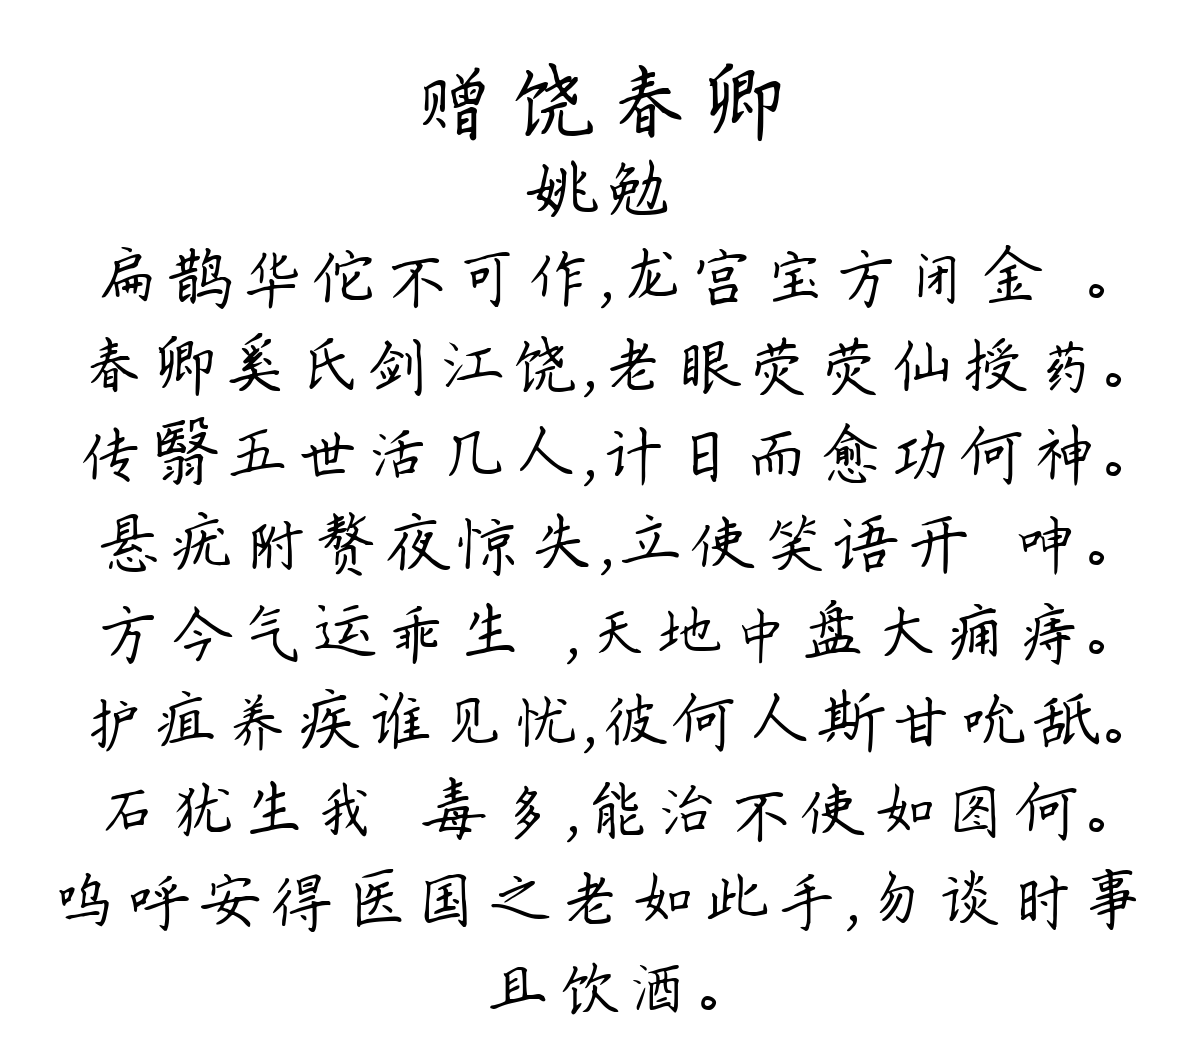 赠饶春卿
姚勉
扁鹊华佗不可作,龙宫宝方闭金 。
春卿奚氏剑江饶,老眼荧荧仙授药。
传翳五世活几人,计日而愈功何神。
悬疣附赘夜惊失,立使笑语开 呻。
方今气运乖生 ,天地中盘大痈痔。
护疽养疾谁见忧,彼何人斯甘吮舐。
石犹生我 毒多,能治不使如图何。
呜呼安得医国之老如此手,勿谈时事
且饮酒。